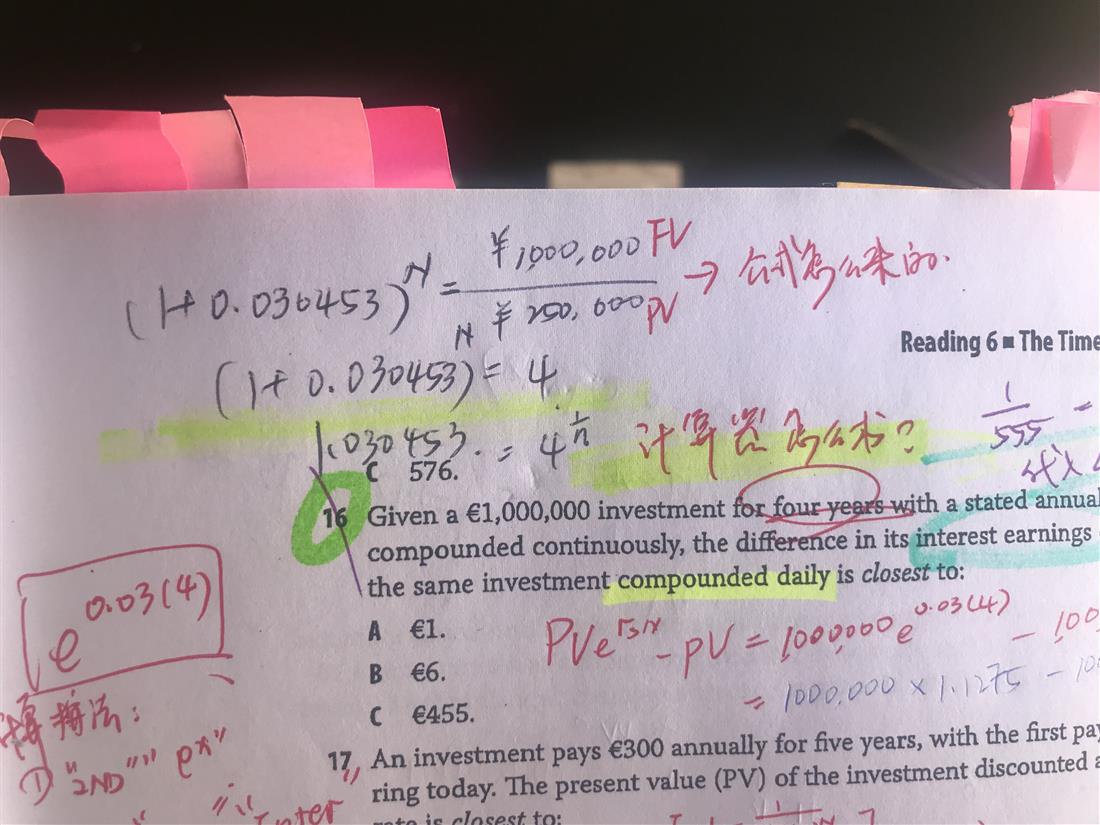 (1+0.030453)^N = ¥1,000,000 FV / ¥250,000 PV → 公式怎么来的.
Reading 6 ■ The Time
(1+0.030453)^N = 4
1.030453. = 4^(1/n) 计算器怎么求?
1/555 =
代入
C 576.
16 Given a €1,000,000 investment for four years with a stated annual
compounded continuously, the difference in its interest earnings
the same investment compounded daily is closest to:
A €1.
B €6.
C €455.
PVe^(rsN) - PV = 1,000,000e^(0.03(4)) - 1,00
= 1000,000 × 1.1275 - 10
e^(0.03(4))
计算算法:
① "2ND" "e^x"
17, An investment pays €300 annually for five years, with the first pay
ring today. The present value (PV) of the investment discounted a
rate is closest to: